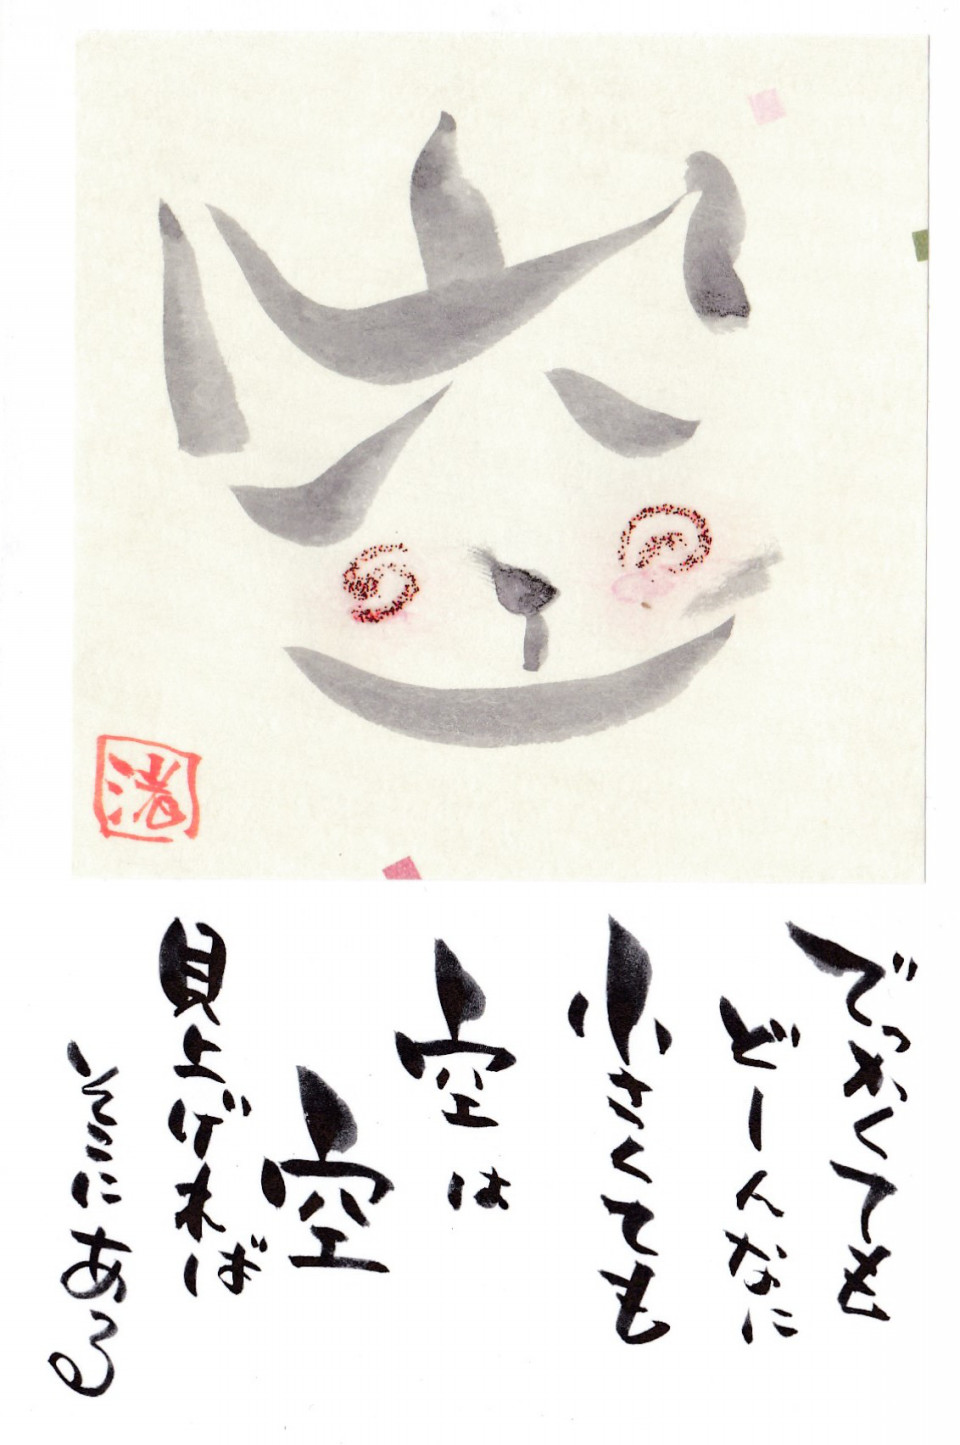 でっかくても
どーんなに
小さくても
空は
空
見上げれば
そこにある
渚